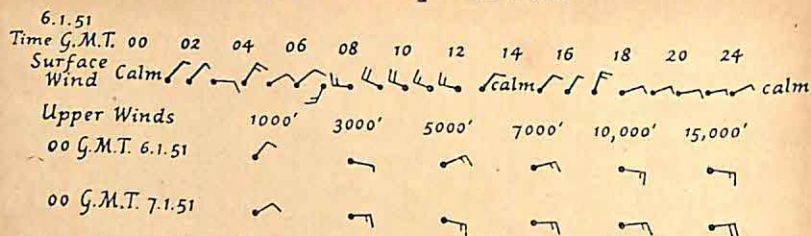 6.1.51
Time G.M.T. 00 02 04 06 08 10 12 14 16 18 20 24
Surface Wind Calm calm calm
Upper Winds 1000' 3000' 5000' 7000' 10,000' 15,000'
00 G.M.T. 6.1.51
00 G.M.T. 7.1.51